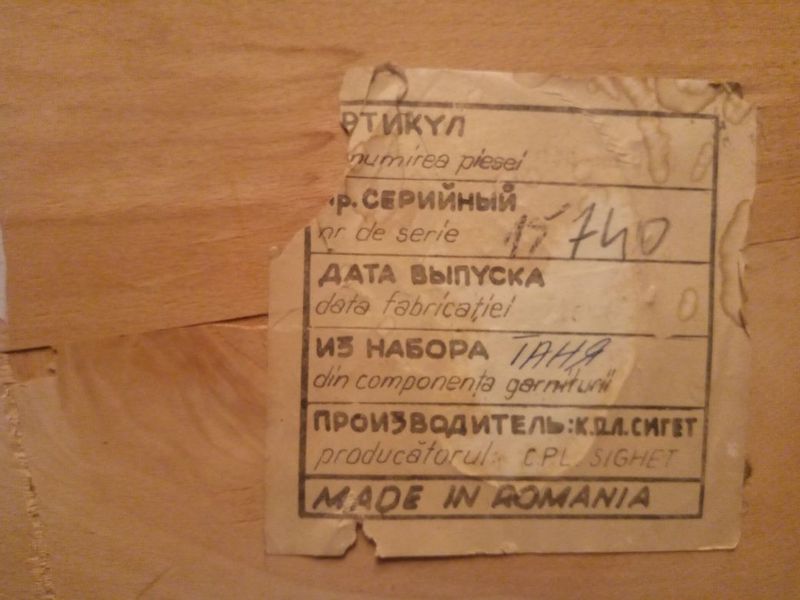 РТИКУЛ
numirea piesei
нр. СЕРИЙНЫЙ
nr de serie 15740
ДАТА ВЫПУСКА
data fabricației
ИЗ НАБОРА ТАНЯ
din componența garniturii
ПРОИЗВОДИТЕЛЬ: К.П.Л. СИГЕТ
producătorul: C.P.L. SIGHET
MADE IN ROMANIA